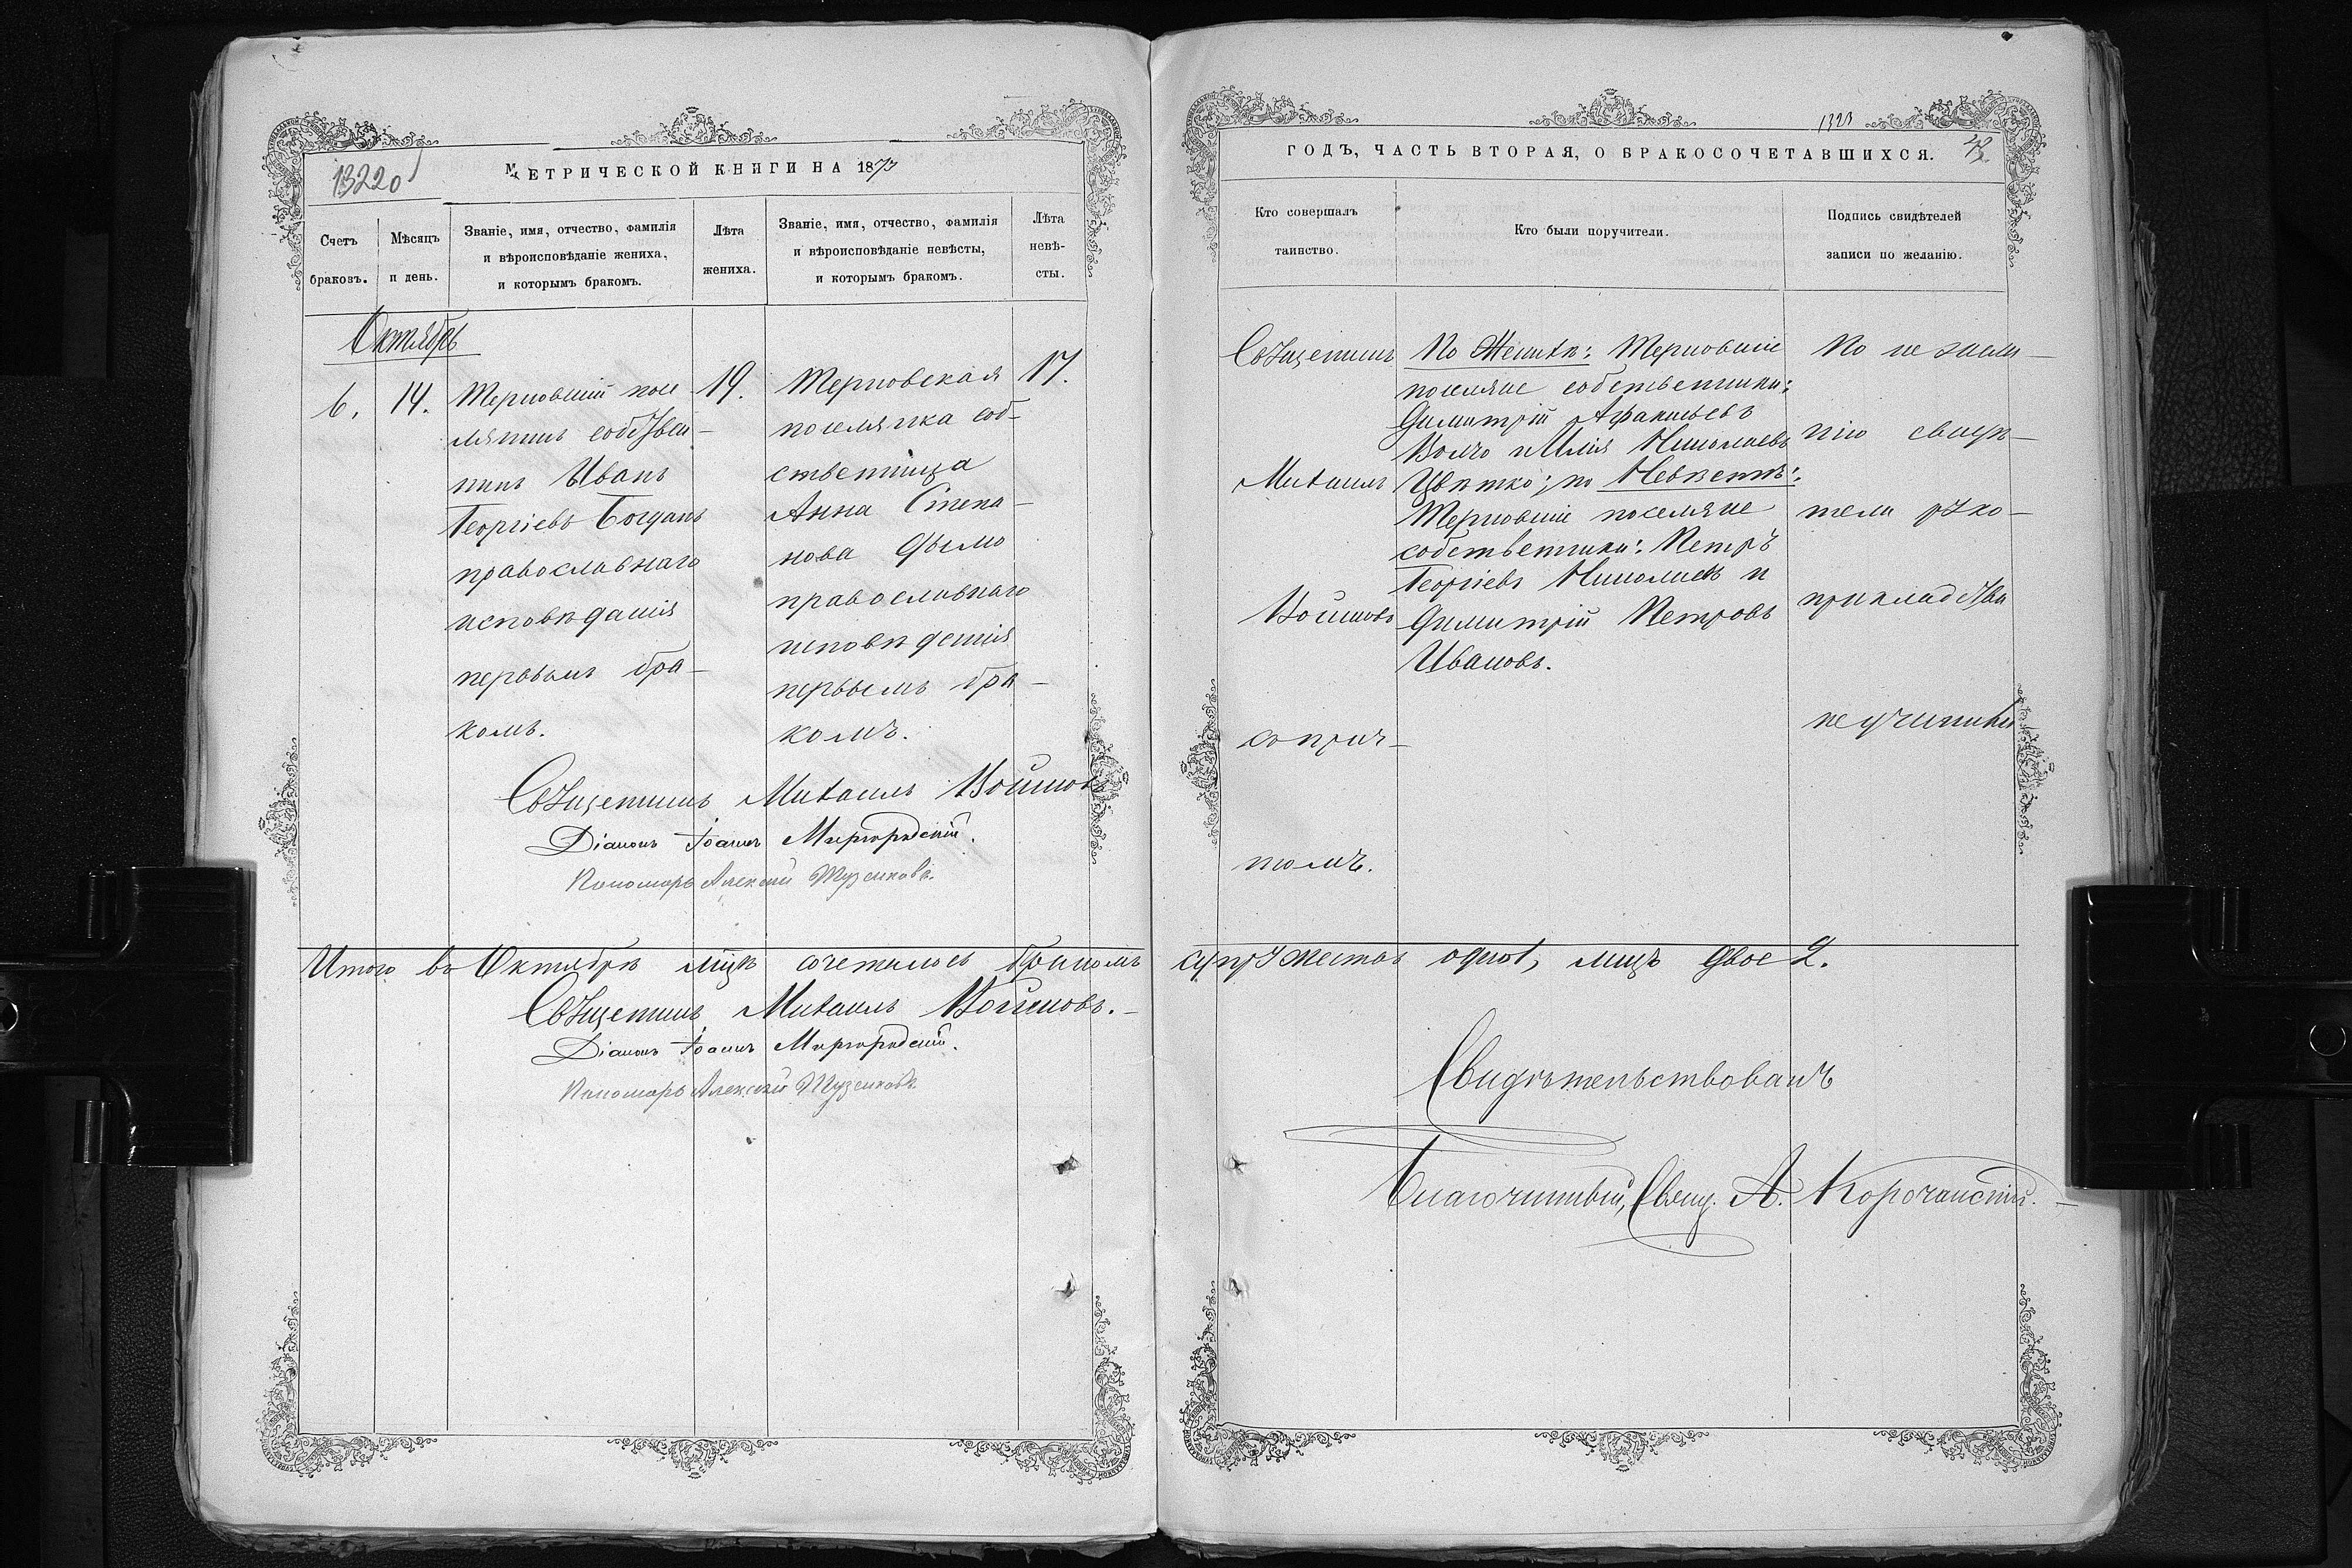 13220
МЕТРИЧЕСКОЙ КНИГИ НА 1873
Счетъ браковъ.
Мѣсяцъ и день.
Званіе, имя, отчество, фамилія
и вѣроисповѣданіе жениха,
и которымъ бракомъ.
Лѣта жениха.
Званіе, имя, отчество, фамилія
и вѣроисповѣданіе невѣсты,
и которымъ бракомъ.
Лѣта невѣ-
сты.
Октябрь
6.
14.
Терновскій посе
лянинъ собстве
нникъ Иванъ
Георгіевъ Богданъ
православнаго
исповѣданія
первымъ бра-
комъ.
19.
Терновская
поселянка соб-
ственница
Анна Степа-
нова Фымо
православнаго
исповѣданія
первымъ бра-
комъ.
17.
Священникъ Михаилъ Войновъ
Діаконъ Іоаннъ Миргородскій.
Пономарь Алексѣй
Итого въ Октябрѣ мцѣ сочеталось бракомъ
Священникъ Михаилъ Войновъ.
Діаконъ Іоаннъ Миргородскій.
Пономарь Алексѣй
1323
43
ГОДЪ, ЧАСТЬ ВТОРАЯ, О БРАКОСОЧЕТАВШИХСЯ.
Кто совершалъ
таинство.
Кто были поручители.
Подпись свидѣтелей
записи по желанію.
Священникъ
Михаилъ
Войновъ
съ прич-
томъ.
По Женихѣ: Терновскіе
поселяне собственники:
Димитрій Афанасьевъ
Волчо и Илія Николаевъ
Цвѣтко; по Невѣстѣ:
Терновскіе поселяне
собственники: Петръ
Георгіевъ Николаевъ и
Димитрій Петровъ
Ивановъ.
По не жела-
нію свидѣ-
тели руко-
прикладства
не учинили
супружество одно 1, лицъ двое 2.
Свидѣтельствовалъ
Благочинный, Свящ. А. Корочанскій.